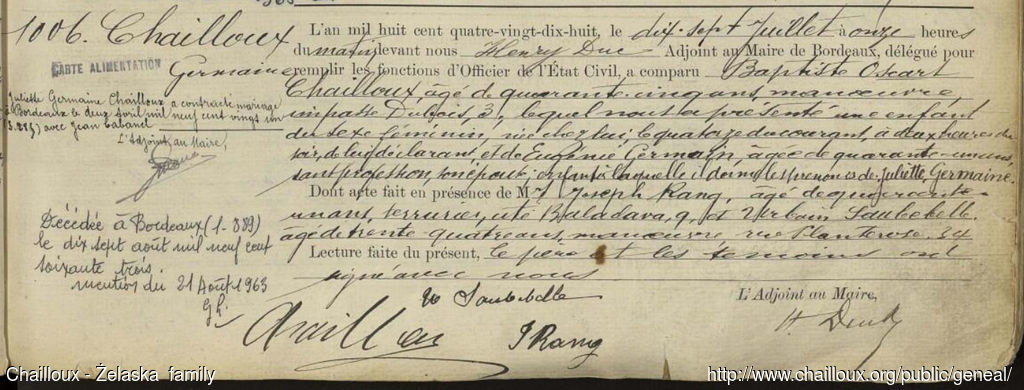 1006. Chailloux
Germaine
CARTE ALIMENTATION
Juliette Germaine Chailloux a contracté mariage
à Bordeaux le deux avril mil neuf cent vingt un
avec Jean Cabanel
L'Adjoint au Maire,
Décédée à Bordeaux (1-389)
le dix sept août mil neuf cent
soixante trois.
mention du 21 Août 1963
L'an mil huit cent quatre-vingt-dix-huit, le dix-sept Juillet à onze heures
du matin devant nous Henry Duc Adjoint au Maire de Bordeaux, délégué pour
remplir les fonctions d'Officier de l'État Civil, a comparu Baptiste Oscart
Chailloux âgé de quarante-cinq ans, manœuvre,
impasse Dubois, 3, lequel nous a présenté une enfant
du sexe féminin, née chez lui le quatorze du courant, à deux heures du
soir, de lui déclarant, et de Eugénie Germain, âgée de quarante-un ans,
sans profession, son épouse; enfant à laquelle il donne les prénoms de Juliette, Germaine.
Dont acte fait en présence de M Joseph Rang, âgé de quarante
un ans, serrurier, cité 9, et Urbain Saubebelle
âgé de trente-quatre ans, manœuvre rue Planterose 34
Lecture faite du présent, le père et les témoins ont
signé avec nous
L'Adjoint au Maire,
Saubebelle
Chailloux
J Rang